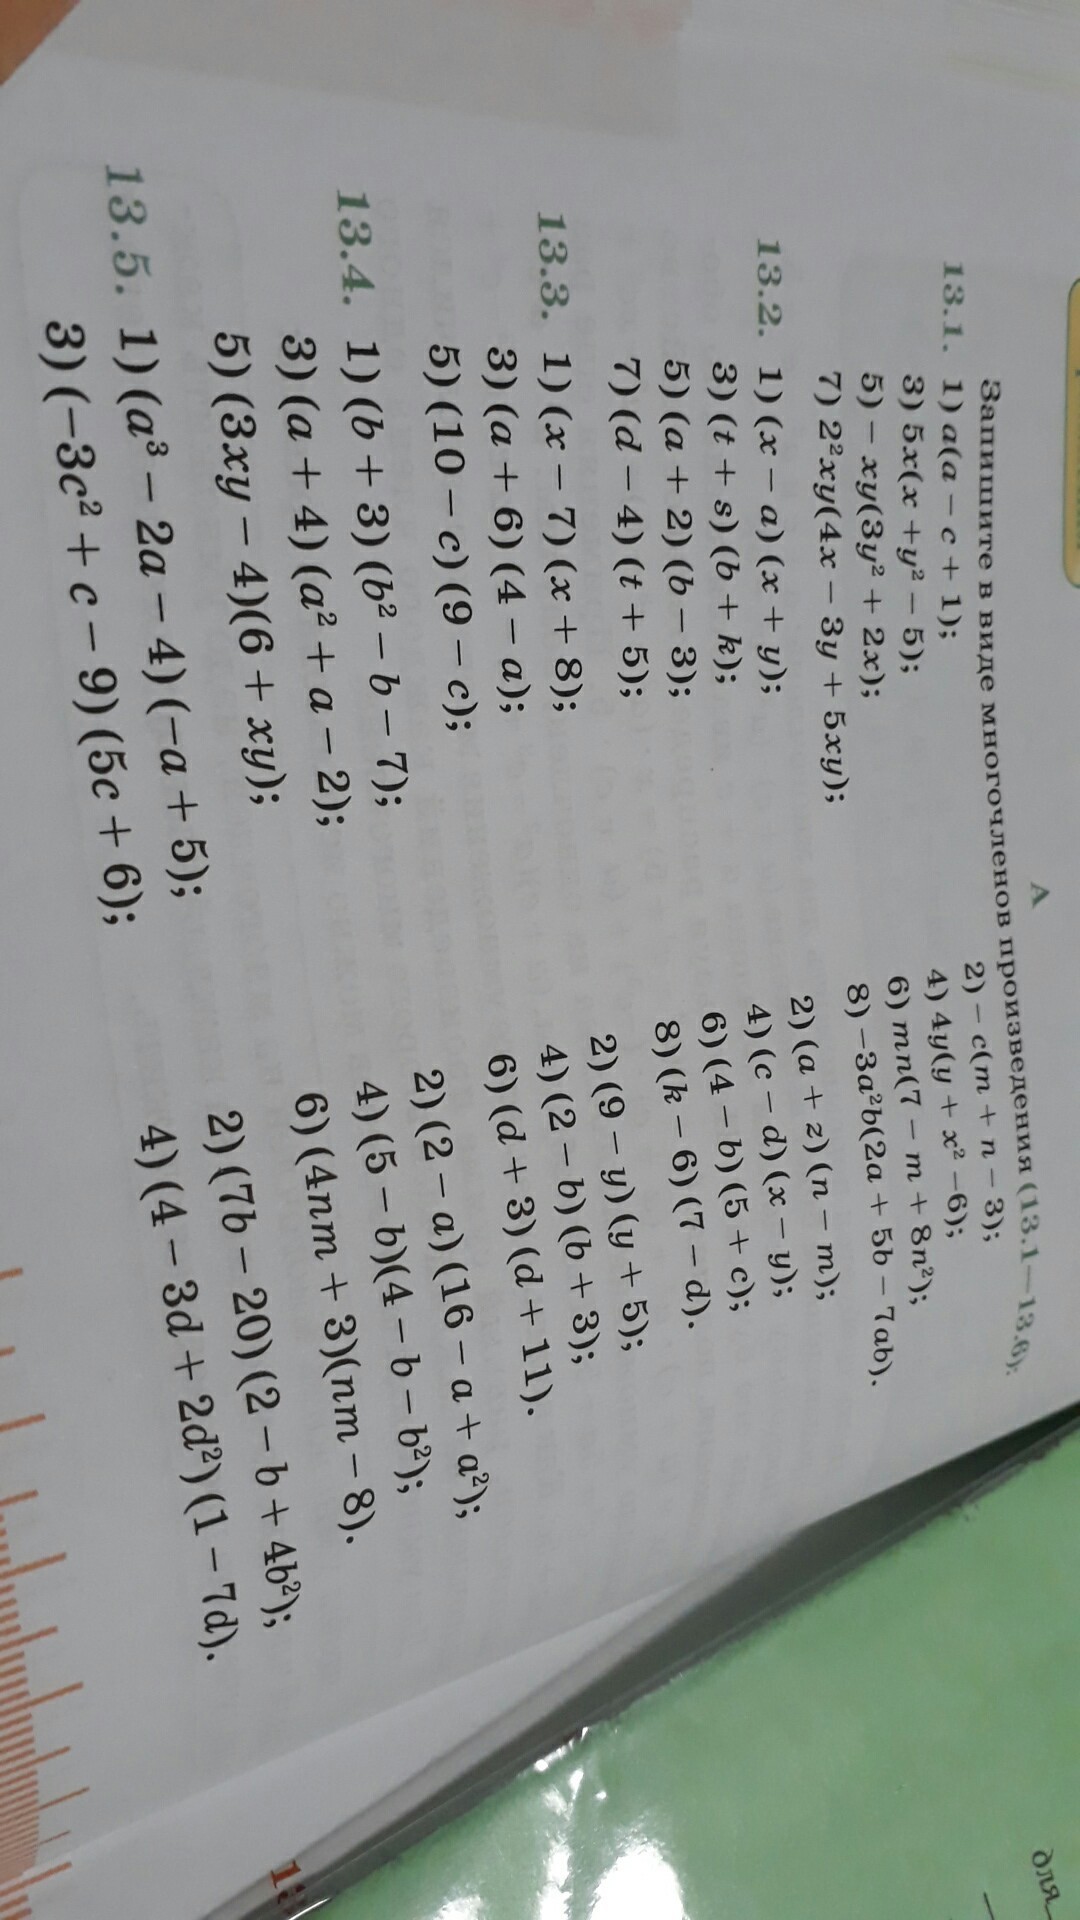 А
Запишите в виде многочленов произведения (13.1—13.6):
13.1. 1) a(a – c + 1); 2) – c(m + n – 3);
3) 5x(x + y² – 5); 4) 4y(y + x² – 6);
5) – xy(3y² + 2x); 6) mn(7 – m + 8n²);
7) 2²xy(4x – 3y + 5xy); 8) –3a²b(2a + 5b – 7ab).
13.2. 1) (x – a) (x + y); 2) (a + z) (n – m);
3) (t + s) (b + k); 4) (c – d) (x – y);
5) (a + 2) (b – 3); 6) (4 – b) (5 + c);
7) (d – 4) (t + 5); 8) (k – 6) (7 – d).
13.3. 1) (x – 7) (x + 8); 2) (9 – y) (y + 5);
3) (a + 6) (4 – a); 4) (2 – b) (b + 3);
5) (10 – c) (9 – c); 6) (d + 3) (d + 11).
13.4. 1) (b + 3) (b² – b – 7); 2) (2 – a) (16 – a + a²);
3) (a + 4) (a² + a – 2); 4) (5 – b)(4 – b – b²);
5) (3xy – 4)(6 + xy); 6) (4nm + 3)(nm – 8).
13.5. 1) (a³ – 2a – 4) (–a + 5); 2) (7b – 20) (2 – b + 4b²);
3) (–3c² + c – 9) (5c + 6); 4) (4 – 3d + 2d²) (1 – 7d).
для